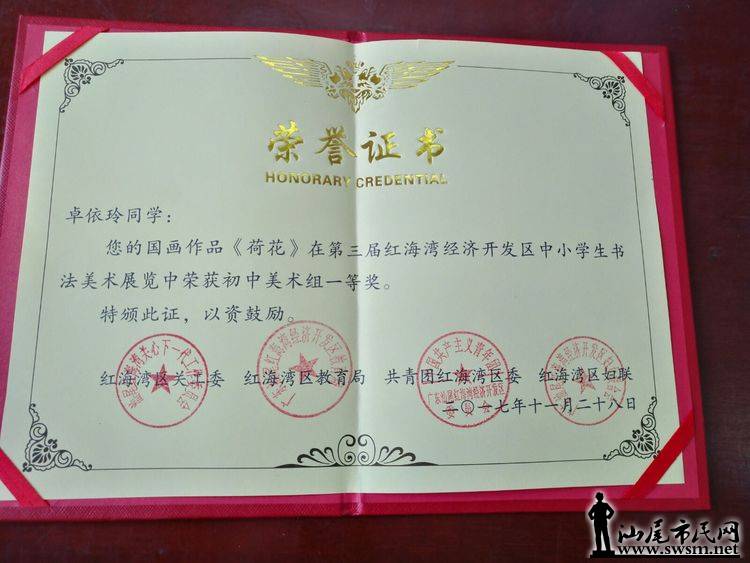 荣誉证书
HONORARY CREDENTIAL
卓依玲同学：
您的国画作品《荷花》在第三届红海湾经济开发区中小学生书
法美术展览中荣获初中美术组一等奖。
特颁此证，以资鼓励。
红海湾区关工委 红海湾区教育局 共青团红海湾区委 红海湾区妇联
二〇一七年十一月二十八日
广东汕尾红海湾经济开发区
委员会
汕尾市民网
www.swsm.net